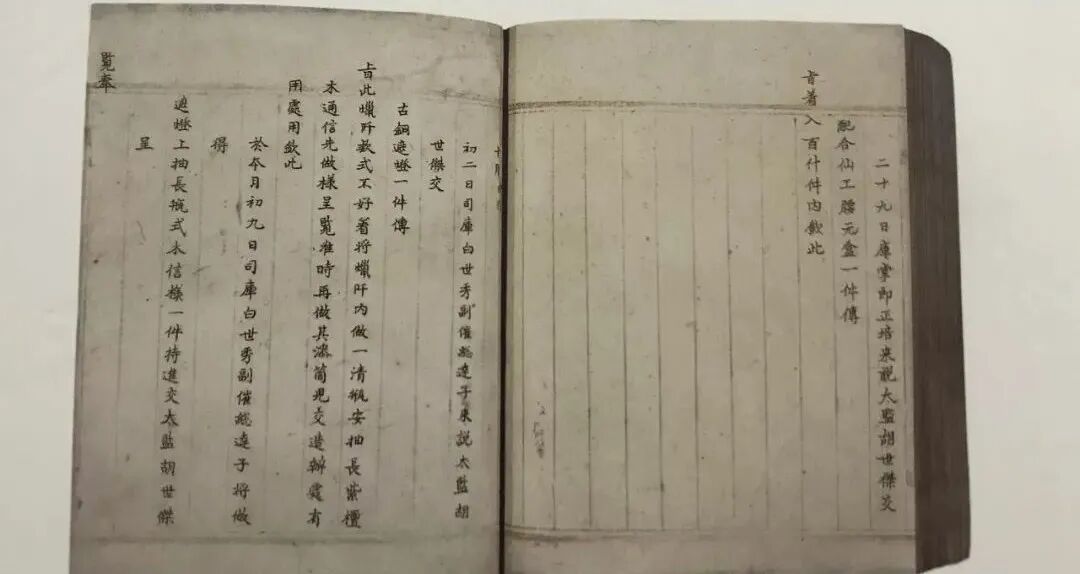 二十九日庫掌郎正培來說太監胡世傑交
配合仙工腰元盒一件傳
旨着入百什件內欽此
初二日司庫白世秀副催總達子來說太監胡
世傑交
古銅遮燈一件傳
旨此蠟阡款式不好着將蠟阡內做一清瓶安抽長紫檀
木通信先做樣呈覽准時再做其筒兒交造辦處有
用處用欽此
於本月初九日司庫白世秀副催總達子將做
得
遮燈上抽長瓶式木信樣一件持進交太監胡世傑
呈
覽奉